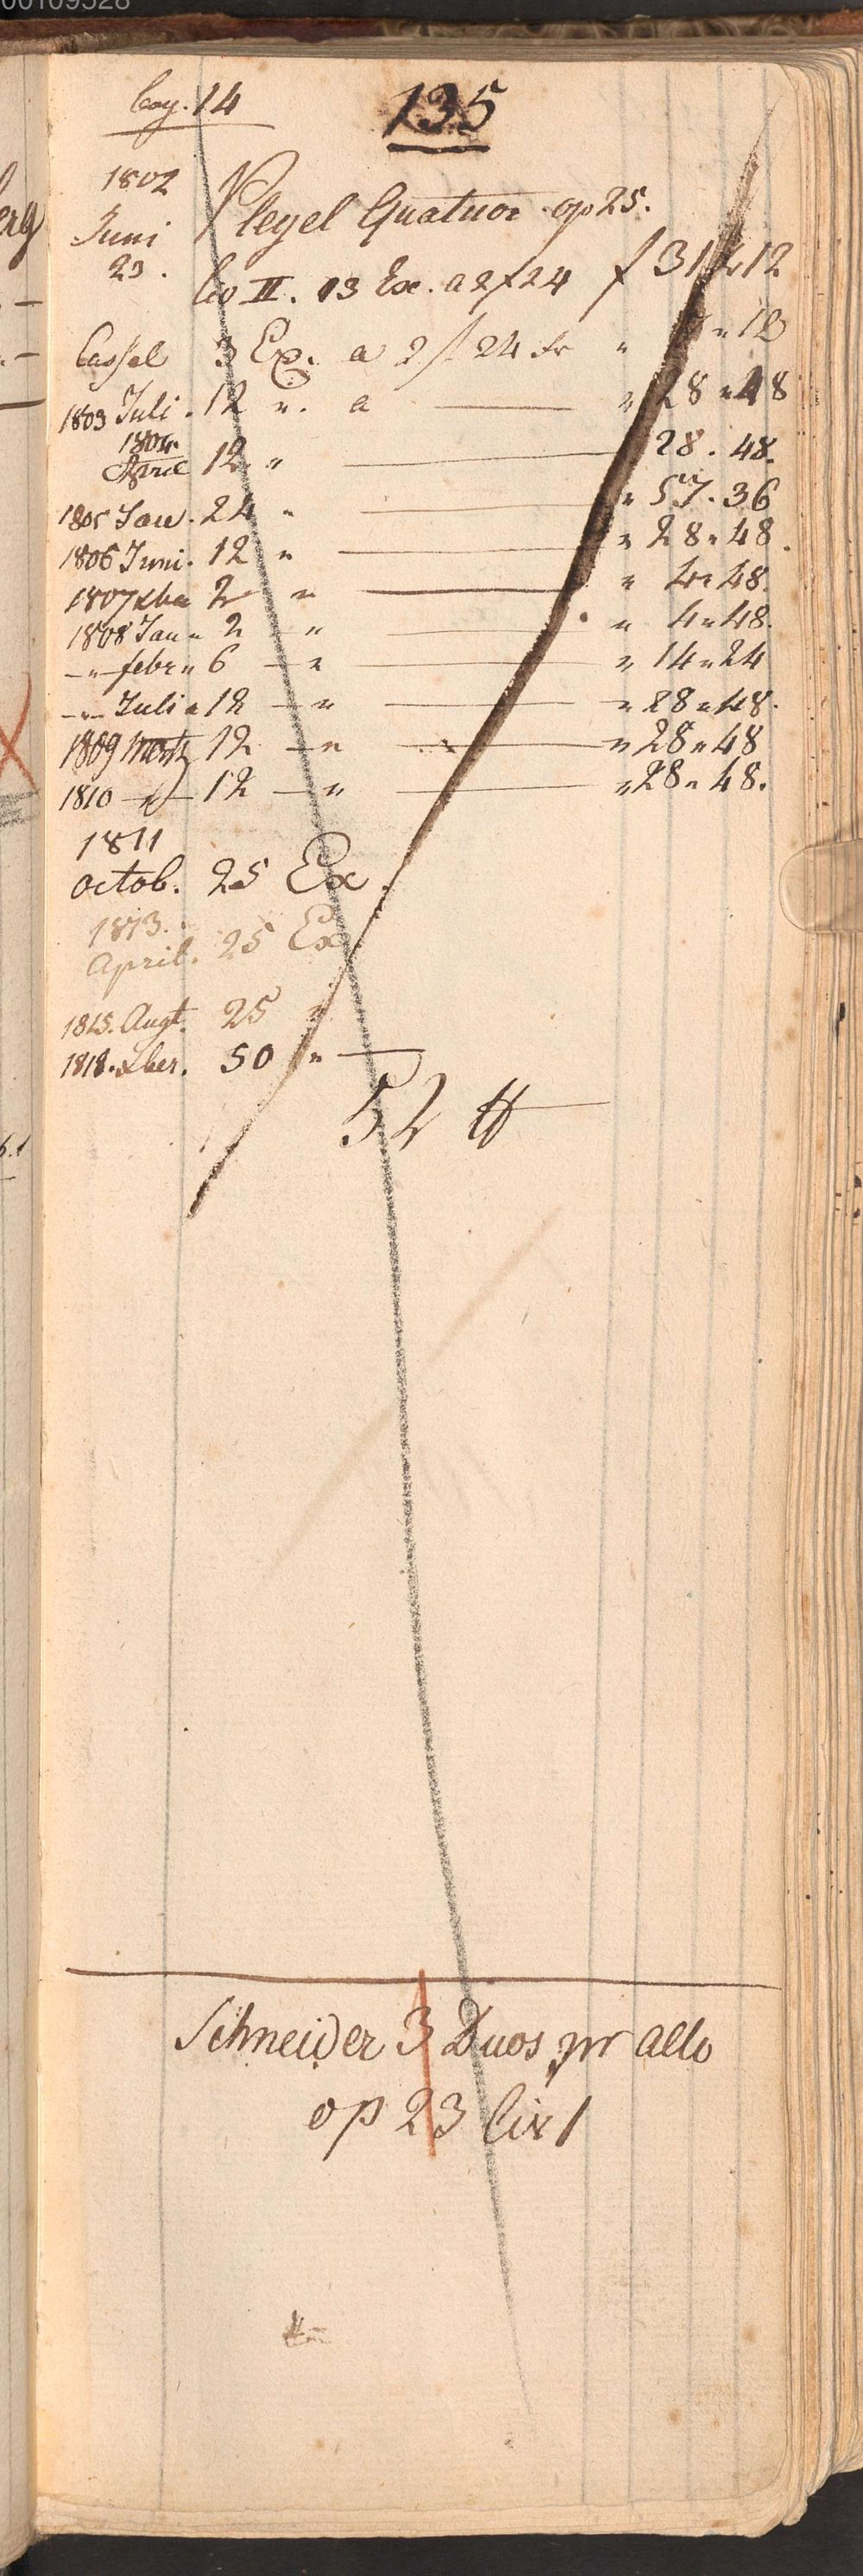 00109528
Cay. 14
135
1802
Juni
23.
Pleyel Quatuor op 25.
liv II. 13 Ex. a 2f 24 f 31 kr 12
Cassel 3 Ex. a 2f 24 kr " 7 " 12
1803 Juli. 12 ". a — " 28 " 48
1804.
April 12 " — 28. 48.
1805 Jan. 24 " — " 57. 36
1806 Juni. 12 " — " 28 " 48.
1807 xber 2 " — " 4 " 48.
1808 Jan " 2 " — " 4 " 48.
— " — febr " 6 — " — " 14 " 24
— " — Juli " 12 — " — " 28 " 48.
1809 Martz 12 — " — " 28 " 48
1810 — " — 12 — " — " 28 " 48.
1811
octob. 25 Ex.
1813.
April. 25 Ex
1815. Augt. 25 "
1818. xber. 50 " —
52 #
Schneider 3 Duos pr alto
op 23 liv 1